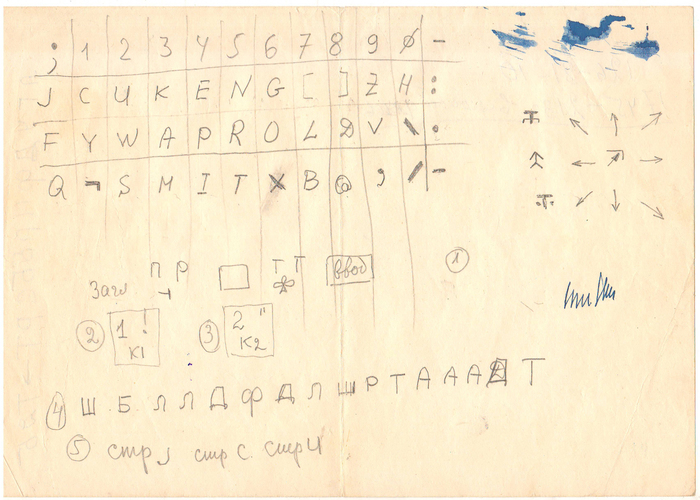 ; 1 2 3 4 5 6 7 8 9 0 -
J C U K E N G [ ] Z H :
F Y W A P R O L D V \ .
Q ¬ S M I T X B @ , / -
П Р Т Т ввод ①
Загл
② 1 ! К1 ③ 2 " К2
④ Ш Б Л Л Д Ф Д Л Ш Р Т А А А Т
⑤ стр J стр С стр Ц